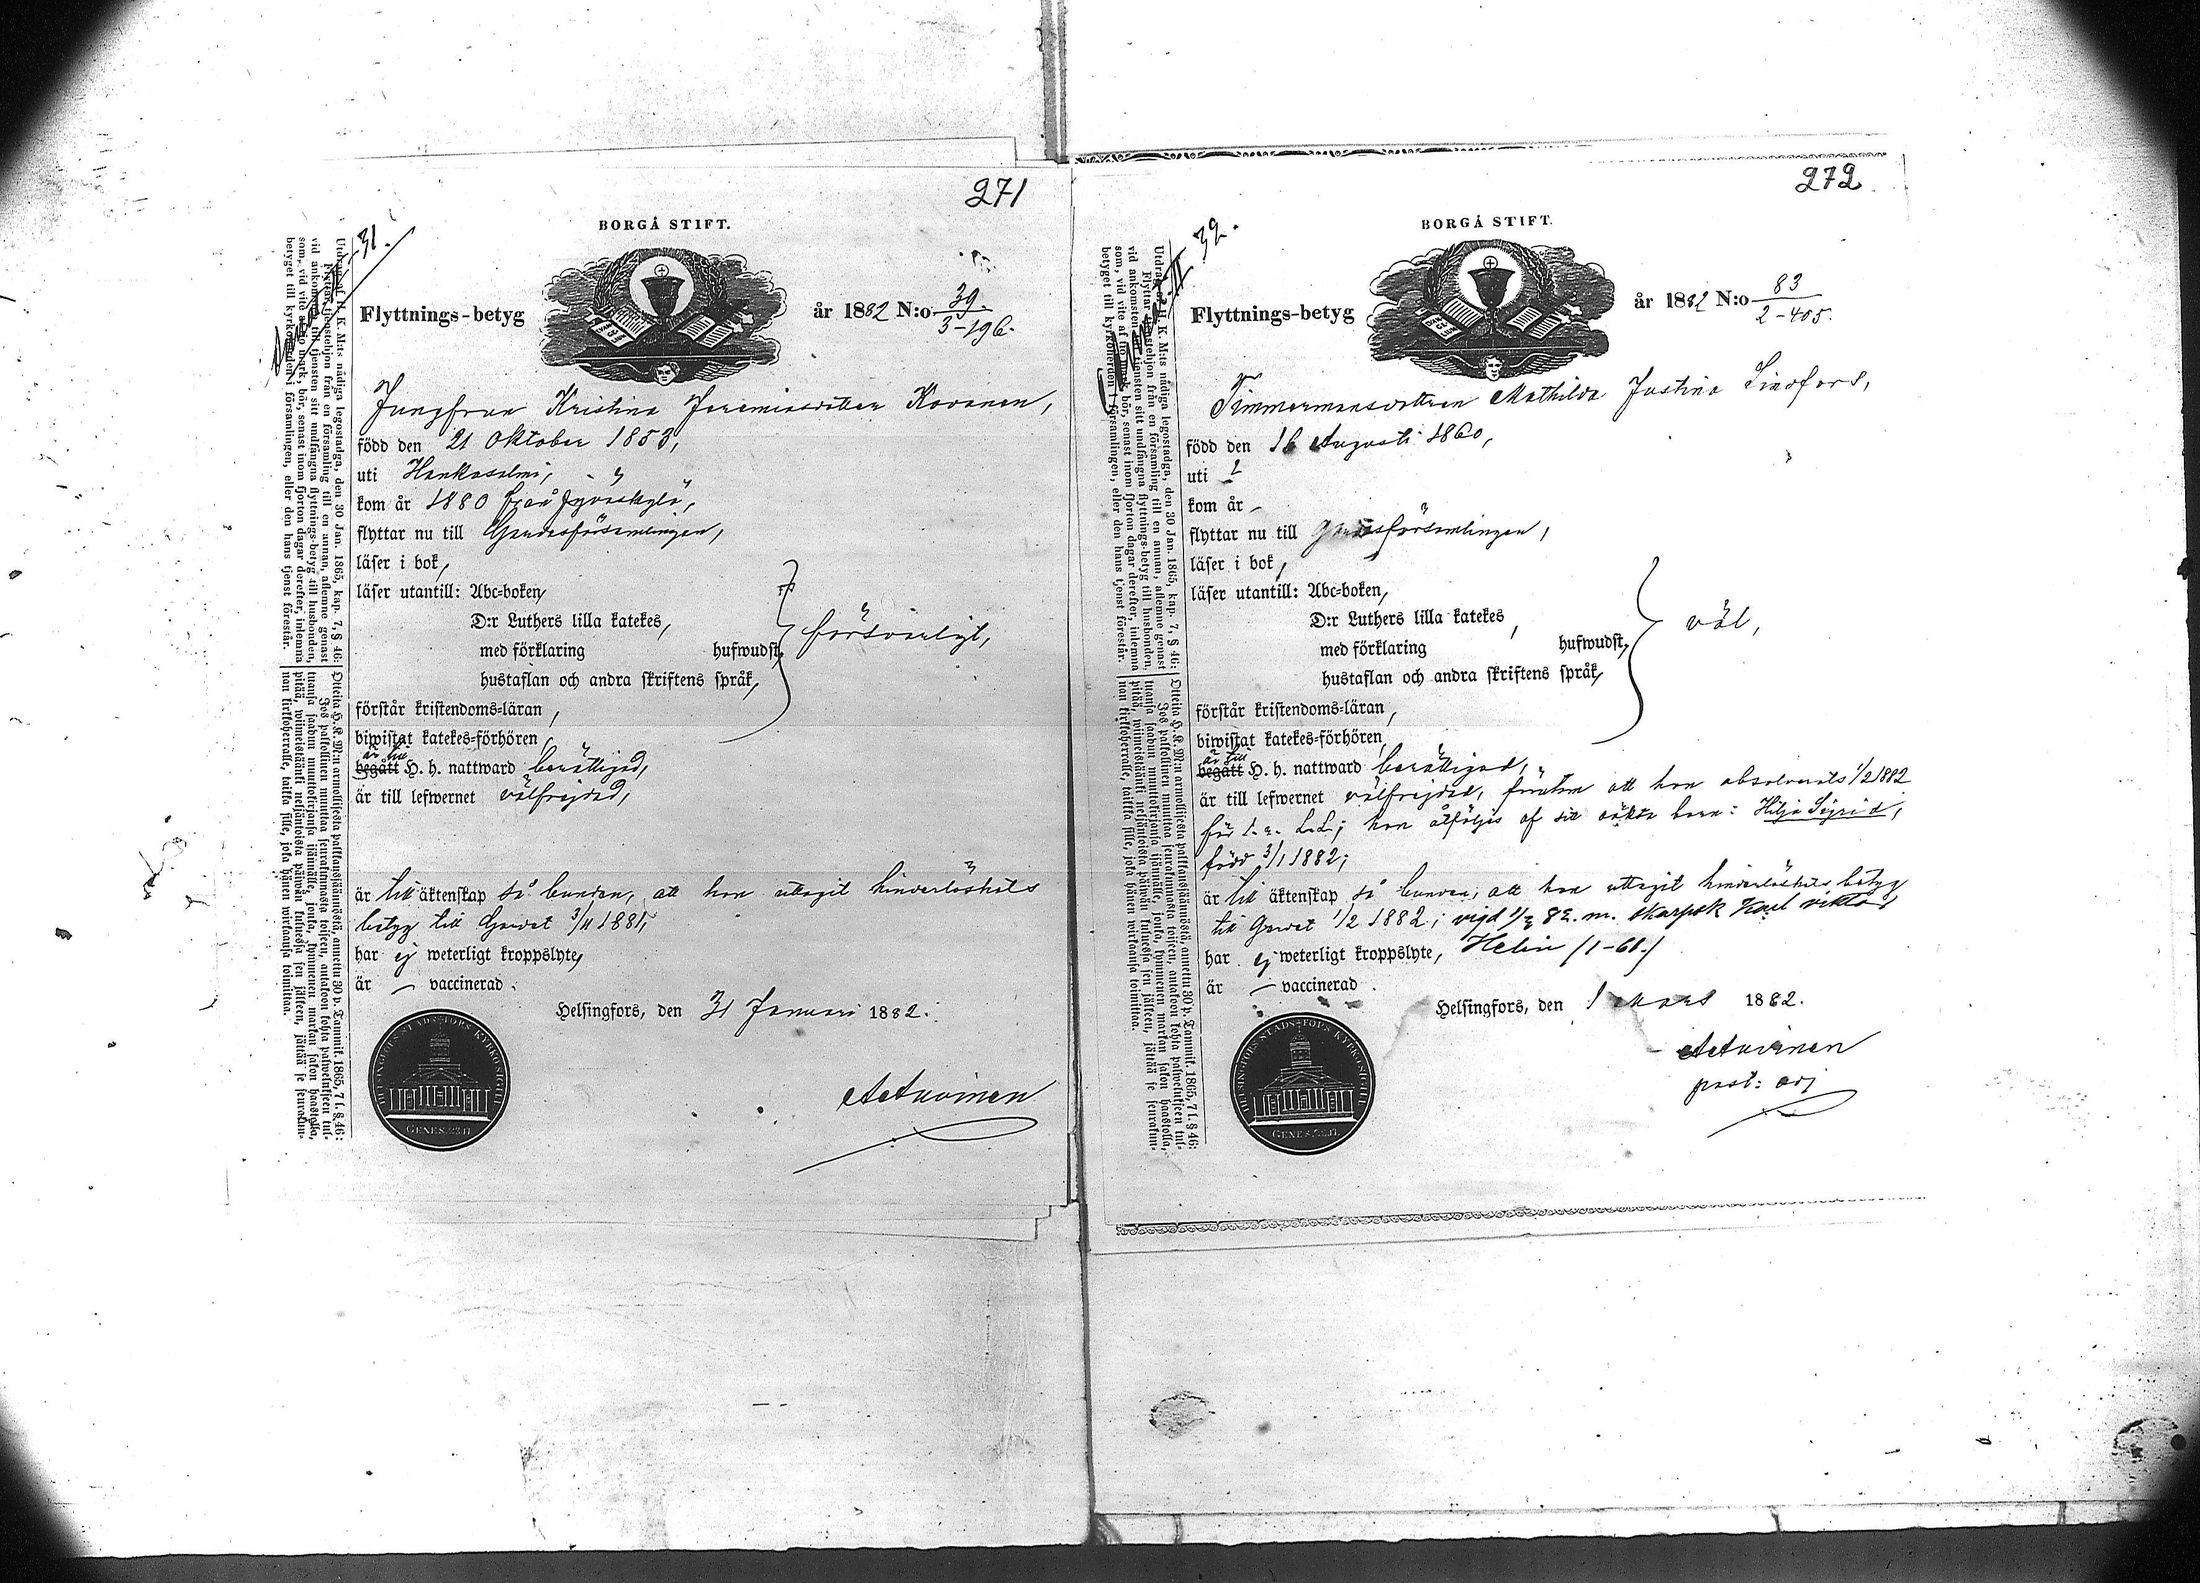 271
31.
BORGÅ STIFT.
Flyttnings-betyg år 1882 N:o 39/3-196.
Jungfrun Kristina Jeremiasdotter Kovanen,
född den 21 Oktober 1853,
uti Hankasalmi,
kom år 1880 från Jyväskylä,
flyttar nu till Gardesförsamlingen,
läser i bok,
läser utantill: Abc-boken,
D:r Luthers lilla katekes,
med förklaring hufwudst.
försvarligt,
hustaflan och andra skriftens språk,
förstår kristendoms-läran,
biwistat katekes-förhören,
är till
begått H. h. nattward berättigad,
är till lefwernet välfrejdad,
är till äktenskap så bunden, att hon uttagit hinderlöshets
betyg till Gardet 3/11 1881,
har ej weterligt kroppslyte,
är — vaccinerad.
Helsingfors, den 31 Januari 1882.
HELSINGFORS STADS-FÖRS KYRKOSIGILL
GENES. 28.17.
Utdrag af H. K. M:ts nådiga legostadga, den 30 Jan. 1865, kap. 7, § 46:
Flyttar tjenstehjon från en församling till en annan, aflemne genast
vid ankomsten till tjensten sitt undfångna flyttnings-betyg till husbonden,
som, vid vite af tio mark, bör, senast inom fjorton dagar derefter, inlemna
betyget till kyrkoherden i församlingen, eller den hans tjenst förestår.
Otteita H. K. M:n armollisesta palkkaussäännöstä, annettu 30 p. Tammik. 1865, 7 l. § 46:
272
32.
BORGÅ STIFT.
Flyttnings-betyg år 1882 N:o 83/2-405.
Timmermansdottren Mathilda Justina Lindfors,
född den 16 Augusti 1860,
uti
kom år -
flyttar nu till Gardesförsamlingen,
läser i bok,
läser utantill: Abc-boken,
D:r Luthers lilla katekes,
med förklaring hufwudst,
väl,
hustaflan och andra skriftens språk,
förstår kristendoms-läran,
biwistat katekes-förhören,
är till
begått H. h. nattward berättigad,
är till lefwernet välfrejdad, förutom att hon absolverats 1/2 1882
för 1.a L.L; hon åtföljes af sitt oäkta barn: Hilja Sigrid,
född 3/1 1882;
är till äktenskap så bunden, att hon uttagit hinderlöshets betyg
till Gardet 1/2 1882; vigd 82. m. skarpsk Karl Viktor
har ej weterligt kroppslyte, Helin (1-61.)
är — vaccinerad.
Helsingfors, den 1 Mars 1882.
past: adj
HELSINGFORS STADS-FÖRS KYRKOSIGILL
GENES. 28.17.
Utdrag af H. K. M:ts nådiga legostadga, den 30 Jan. 1865, kap. 7, § 46:
Flyttar tjenstehjon från en församling till en annan, aflemne genast
vid ankomsten till tjensten sitt undfångna flyttnings-betyg till husbonden,
som, vid vite af tio mark, bör, senast inom fjorton dagar derefter, inlemna
betyget till kyrkoherden i församlingen, eller den hans tjenst förestår.
Otteita H. K. M:n armollisesta palkkaussäännöstä, annettu 30 p. Tammik. 1865, 7 l. § 46: